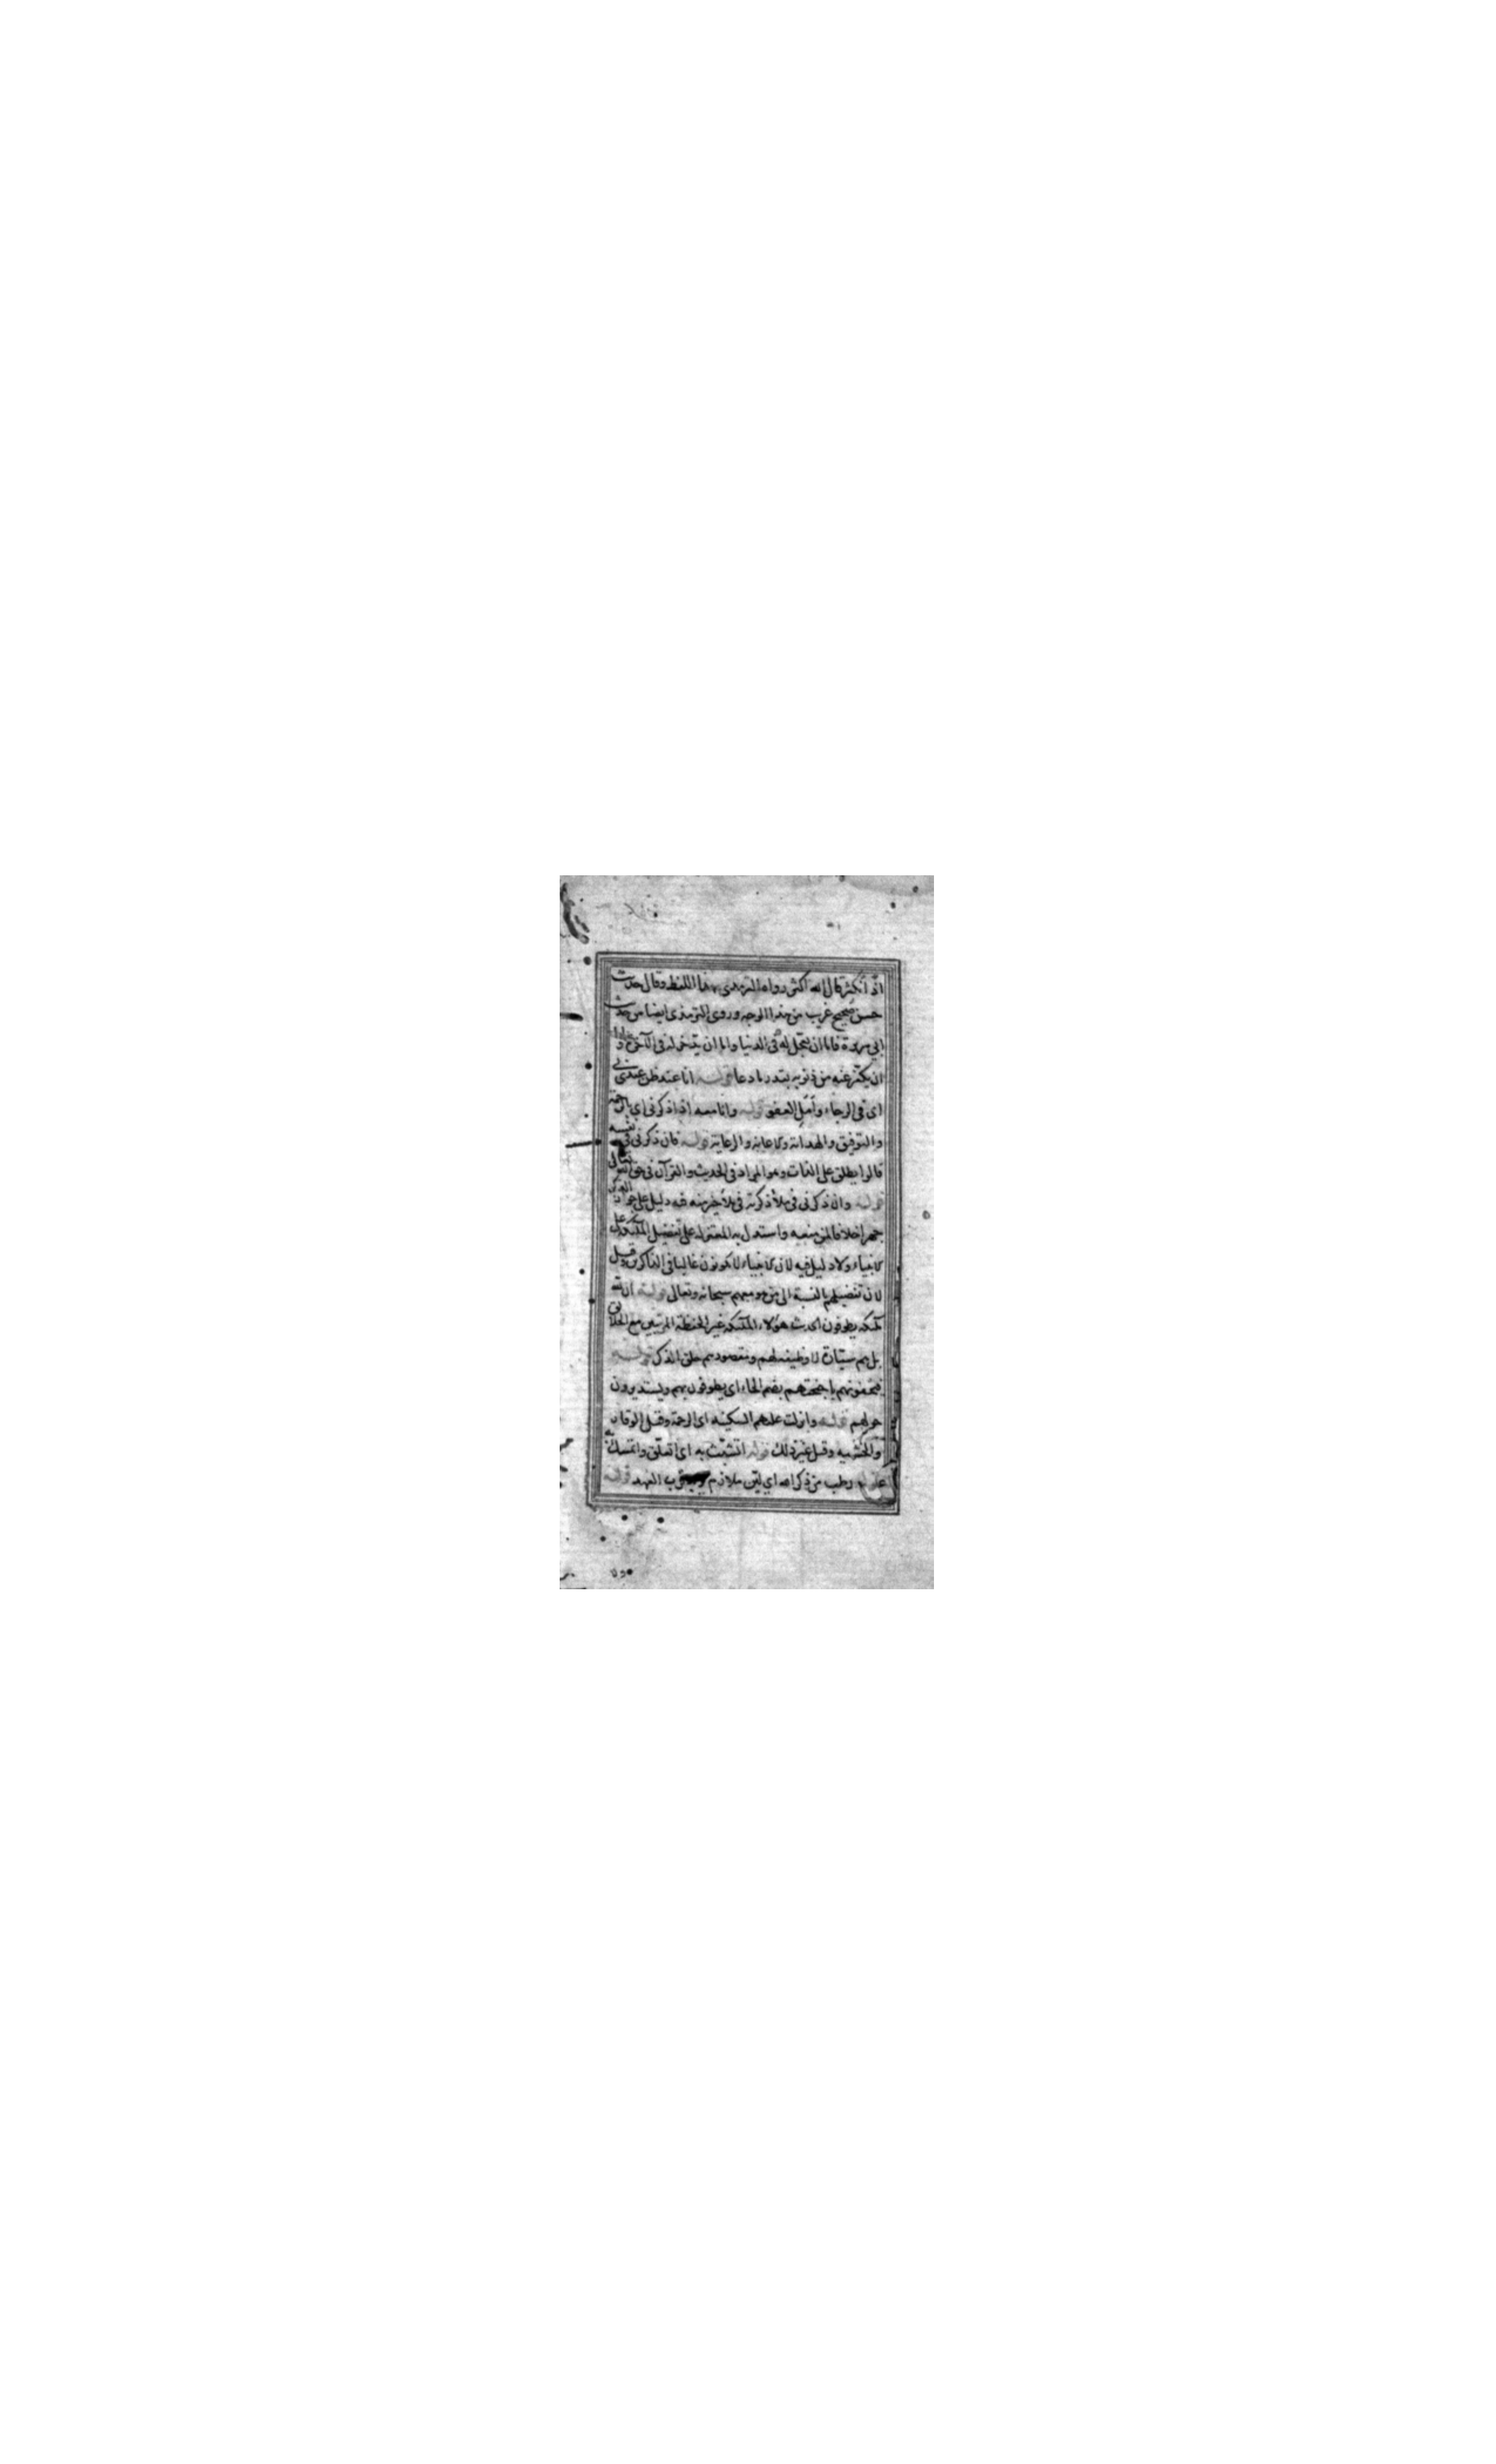 اذًا نكثر قال الله اكثر رواه الترمذى بهذا اللفظ وقال حديث
حسن صحيح غريب من هذا الوجه وروى الترمذى ايضا من حديث
ابي هريرة فاما ان يعجل له فى الدنيا واما ان يدخر له فى الآخرة واما
ان يكفر عنه من ذنوبه بقدر ما دعا قوله انا عند ظن عبدى بى
اى فى الرجاء وأمل العفو قوله وانا معه اذا ذكرنى اي بالرحمة
والتوفيق والهداية والاعانة والرعاية قوله فان ذكرنى فى نفسه
قالوا يطلق على الذات وهو المراد فى الحديث والقرآن فى حق الله تعالى
قوله وان ذكرنى فى ملأ ذكرته فى ملأ خير منه فيه دليل على جواز الذكر
جهرا خلافا لمن منعه واستدل به المعتزلة على تفضيل الملئكة على
الانبياء ولا دليل فيه لان الانبياء لا يكونون غالبا فى الذاكرين وقيل
لان تفضيلهم بالنسبة الى من هو معهم سبحانه وتعالى قوله ان لله
ملئكة يطوفون الحديث هؤلاء الملئكة غير الحفظة المرتبين مع الخلائق
بل هم سيّارة لا وظيفة لهم ومقصودهم حلق الذكر قوله
فيحفونهم باجنحتهم بضم الحاء اى يطوفون بهم ويستديرون
حولهم قوله وانزلت عليهم السكينة اى الرحمة وقيل الوقار
والخشية وقيل غير ذلك قوله اتشبّث به اى اتعلق واتمسك به
قوله رطب من ذكر الله اي ليّن ملازم قريب العهد قوله